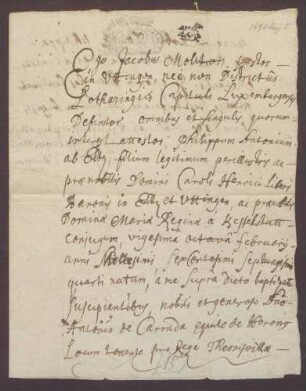 1690 Aug. 8
Ego Jacobus Molitor, pastor
in Uttingen, nec non Districtus
Lotharingici Capituli Luxemburgensis
Definitor, omnibus et singulis quorum
interest attestor, Philippum Antonium
ab Eltz filium legitimum perillustris ac
praenobilis Domini Caroli Henrici Liberi
Baronis in Eltz et Uttingen, ac praenobilis
Domina Maria Regina a Hesselstatt
conjugum, vigesima octava februarij
anni Millesimi sexcentesimi septuagesimi
quarti natum, à me supra dicto baptizatum
suscipientibus nobili et generoso Dno
Antonio de Carrada equite de
Locum tenente pro Rege Theonisvilla